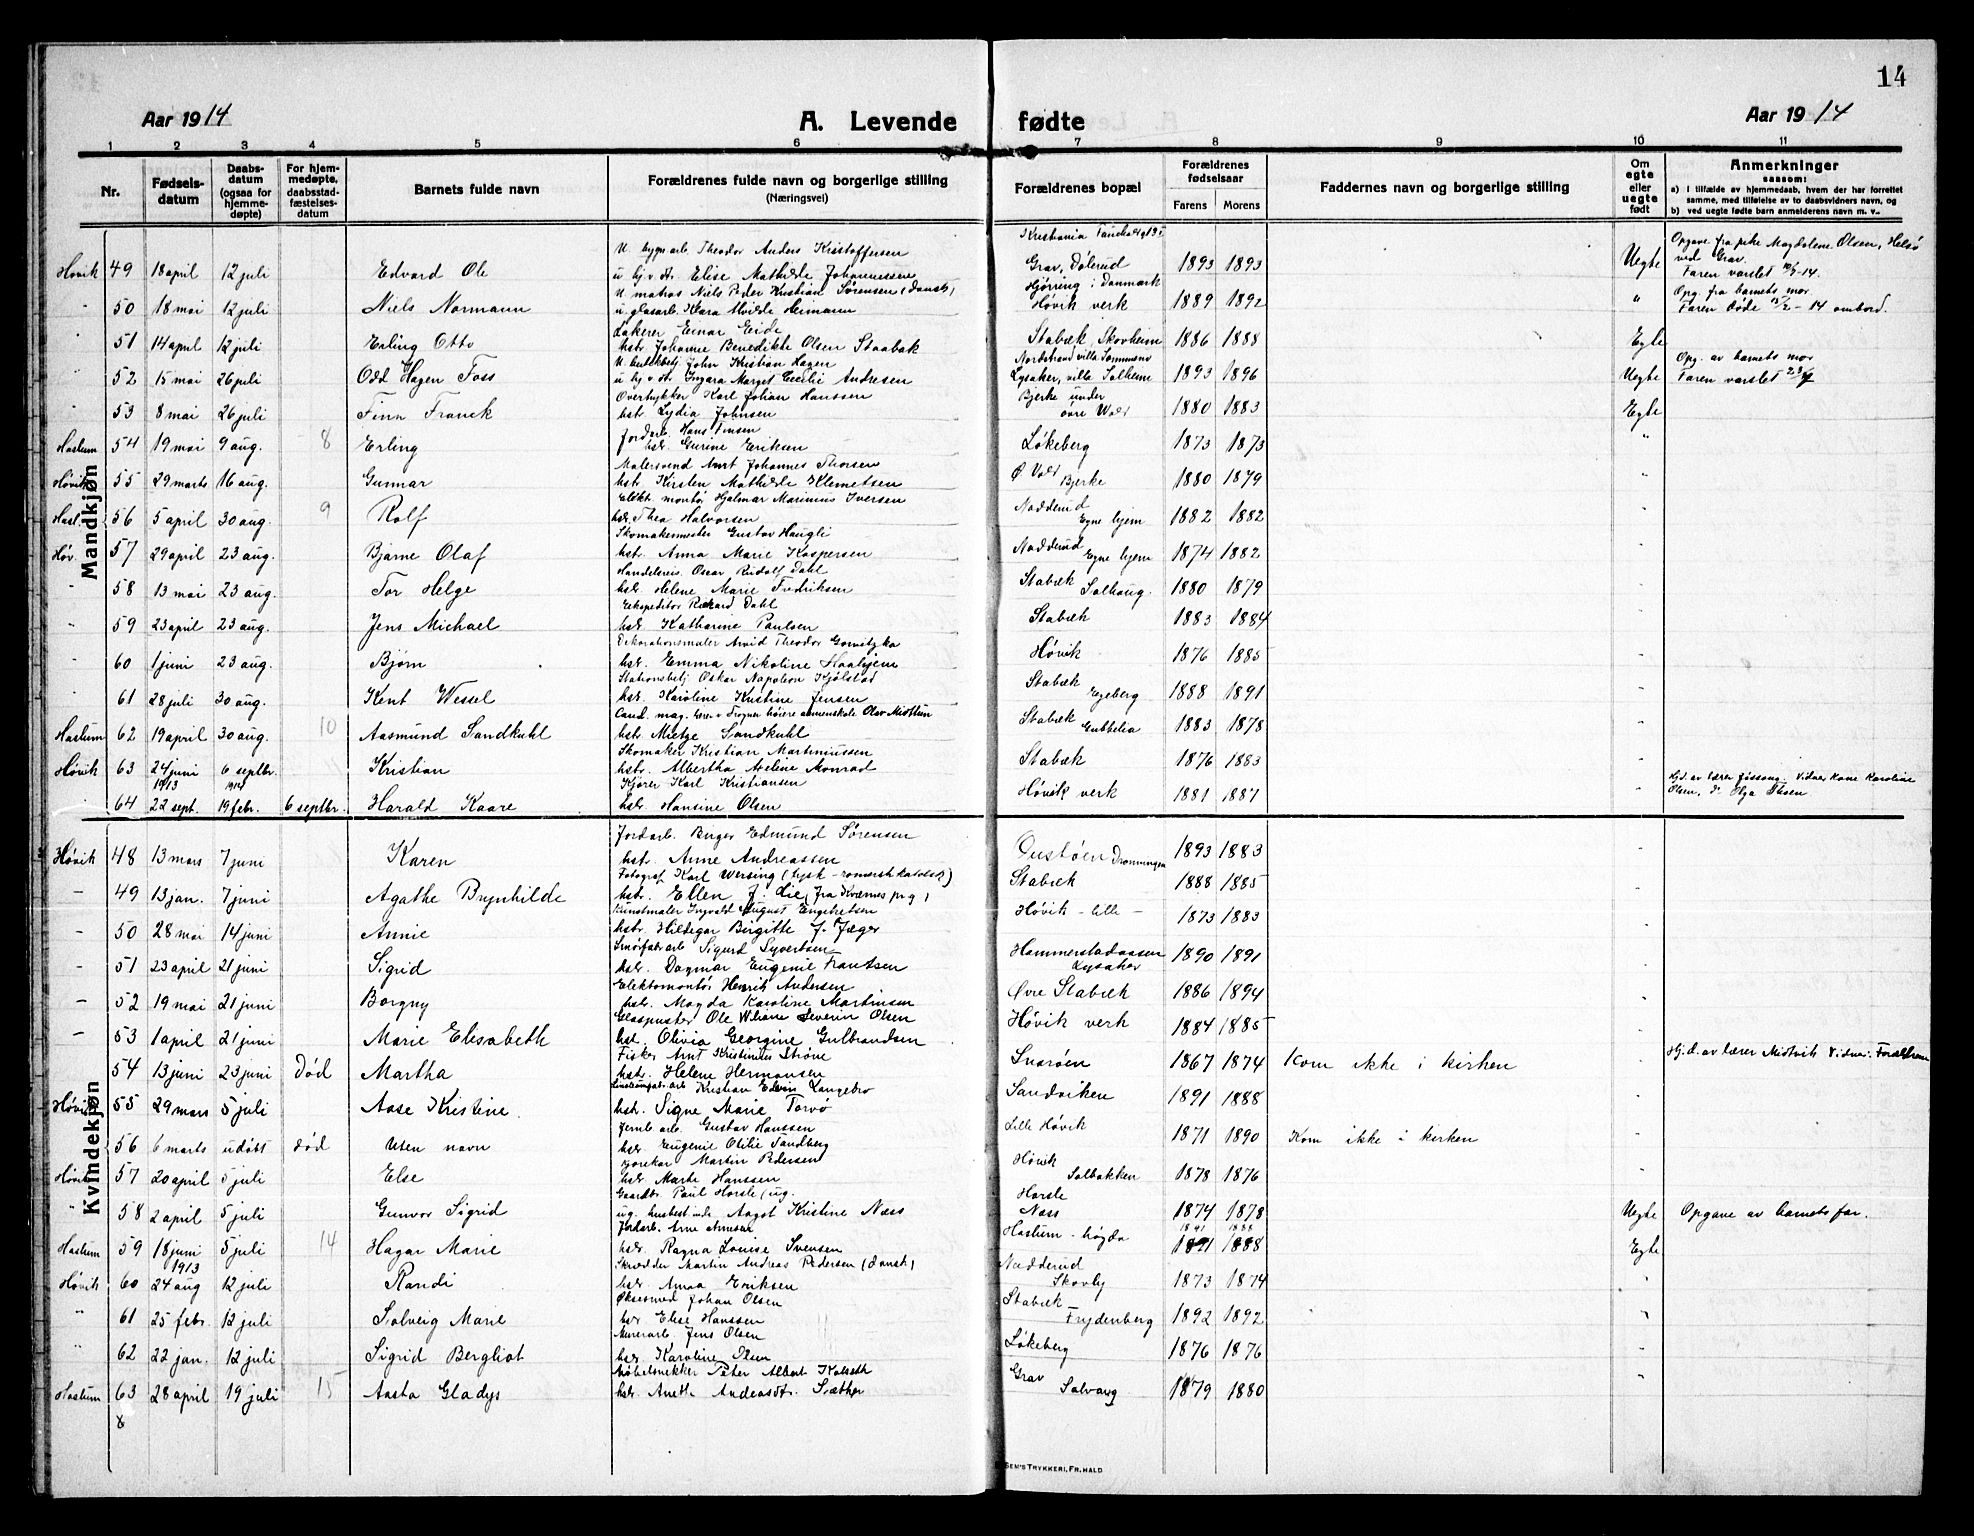 14
Aar 1914 A. Levende fødte Aar 1914
1 2 3 4 5 6 7 8 9 10 11
Nr. Fødselsdatum Daabsdatum (ogsaa for hjemmedøpte) For hjemmedøpte, daabsstadfæstelsesdatum Barnets fulde navn Forældrenes fulde navn og borgerlige stilling (Næringsvei) Forældrenes bopæl Forældrenes fødselsaar Farens Morens Faddernes navn og borgerlige stilling Om egte eller uegte født Anmerkninger saasom:
a) i tilfælde av hjemmedaab, hvem der har forrettet samme, med tilføielse av to daabsvidners navn, og
b) ved uegte fødte barn anmelderens navn m. v.
Mandkjøn
U. bygn arb. Theodor Anders Kristoffersen Kristiania Opgave fra pike Magdalene Olsen,
Høvik 49 18 april 12 juli Edvard Ole u. hj. v. st. Elise Mathilde Johannessen Grav, Dølerud 1893 1893 Uegte ved Grav. Faren varslet -14.
U. matros Niels Peder Kristian Sørensen (dansk) Hjørring i Danmark Opg. fra barnets mor
" 50 18 mai 12 juli Niels Normann u. glasarb. Klara Hermann Høvik verk 1889 1892 " Faren døde - 14 ombord.
Lakerer Einar Eide
" 51 14 april 12 juli Erling Otto hstr. Johanne Benedikte Olsen Staabak Stabæk, Skovheim 1886 1888 Egte
U. John Kristian Hagen Nordstrand villa Opg. av barnets mor
" 52 15 mai 26 juli Odd Hagen Foss u. hj. v. st. Ingara Marget Cecilie Andresen Lysaker, villa Solheim 1893 1896 Uegte Faren varslet
Overhykker Karl Johan Hanssen Bjerke under
" 53 8 mai 26 juli Finn Franck hstr. Lydia Johnsen øvre Vold 1880 1883 Egte
Jordarb. Hans Jensen
Haslum 54 19 mai 9 aug. 8 Erling hstr. Gurine Eriksen Løkeberg 1873 1873 "
Malersvend Amt Johannes Thorsen Ø Vold
Høvik 55 29 marts 16 aug. Gunnar hstr. Kirsten Mathilde Klemetsen Bjerke 1880 1879
Elekt. montør Hjalmar Marinius Iversen Nadderud
Hasl. 56 5 april 30 aug. 9 Rolf hstr. Thea Halvorsen Egne hjem 1882 1882
Skomakermester Gustav Haugli Nadderud
Høv. 57 29 april 23 aug. Bjarne Olaf hstr. Anna Marie Kaspersen Egne hjem 1874 1882
Handelsreis. Oscar Rudolf Dahl Stabæk
" 58 13 mai 23 aug. Tor Helge hstr. Helene Marie Fredriksen Solhaug. 1880 1879
Ekspeditør Rickard Dahl
" 59 23 april 23 aug. Jens Michael hstr. Katharine Paulsen Stabæk 1883 1884
Dekorationsmaler Arvid Theodor Gorvitzka
" 60 1 juni 23 aug. Bjørn hstr. Emma Nikoline Haahjem Høvik 1876 1885
Stationsbetj. Oskar Napoleon Kjølstad Stabæk
" 61 28 juli 30 aug. Kent Wessel hstr. Karoline Kristine Jensen Egeberg 1888 1891
Cand. mag. lærer v Frogner høiere almenskole Olav Midttun Stabæk
Haslum 62 19 april 30 aug. 10 Aasmund Sandkuhl hstr. Mietze Sandkuhl Gubbelia 1883 1878
Skomaker Kristian Martiniussen
Høvik 63 24 juni 6 septbr. Kristian hstr. Albertha Aveline Monrad Stabæk 1876 1883
1913 1914 Kjører Karl Kristiansen Hj.d. av lærer Jøssang. Vidner Kone Karoline
" 64 22 sept. 19 febr. 6 septbr. Harald Kaare hstr. Hansine Olsen Høvik verk 1881 1887 Olsen, Olga Olsen
Kvindekjøn
Jordarb. Birger Edmund Sørensen
Høvik 48 13 mars 7 juni Karen hstr. Anne Andreassen Oustøen Dronningen 1893 1883
Fotograf Karl Wersing (tysk - romersk katolsk)
" 49 13 jan. 7 juni Agathe Brynhilde hstr. Ellen f. Lie (fra Kvernes prg.) Stabæk 1888 1885
Kunstmaler Ingvald August Engebretsen
" 50 28 mai 14 juni Annie hstr. Hildegar Birgitte f. Jæger Høvik - lille - 1873 1883
Smørfabr arb Sigurd Syvertsen Hammerstadaasen
" 51 23 april 21 juni Sigrid hstr. Dagmar Eugenie Frantsen Lysaker 1890 1891
Elektomontør Henrik Andersen
" 52 19 mai 21 juni Borgny hstr. Magda Karoline Martinsen Øvre Stabæk 1886 1894
Glaspuster Ole Wiliam Severin Olsen
" 53 1 april 21 juni Marie Elisabeth hstr. Olivia Georgine Gulbrandsen Høvik verk 1884 1885
Fisker Arnt Kristinius Strøne
54 13 juni 23 juni Død Martha hstr. Helene Hermansen Snarøen 1867 1874 Kom ikke i kirken Hj.d. av lærer Midtvik Vidner: Forældrene
Kristian Edvin Langebro
Høvik 55 29 mars 5 juli Aase Kristine. hstr. Signe Marie Torvø Sandviken 1891 1888
Jernb arb. Gustav Hanssen
56 6 marts udøbt død Uten navn hstr. Eugenie Otilie Sandberg Lille Høvik 1871 1890 Kom ikke i kirken
Kjørekar Martin Pedersen Høvik
Høvik 57 20 april 5 juli Else hstr. Marte Hanssen Solbakken 1878 1876
Gaardbr. Paul Horsle, ug. Horsle
" 58 2 april 5 juli Gunvor Sigrid ug. Aagot Kristine Næss Næss 1874 1878 Uegte Opgave av barnets far.
Jordarb. Arne 1891 1888
Haslum 59 18 juni 5 juli 14 Hagar Marie hstr. Ragna Louise Svensen Haslum høgda 1888 Egte
1913 Skrædder Martin Andreas Pedersen (dansk) Nadderud
Høvik 60 24 aug 12 juli Randi hstr. Anna Eriksen Skovly 1873 1874 "
Øksesmed Johan Olsen Stabæk
" 61 25 febr. 12 juli Solveig Marie hstr. Elise Hanssen Frydenberg 1892 1892
Murerarb. Jens Olsen
" 62 22 jan. 12 juli Sigrid Bergliot hstr. Karoline Olsen Løkeberg 1876 1876
Møbelsnekker Peter Albert Kolseth Grav
Haslum 63 28 april 19 juli 15 Aasta Gladys hstr. Anette Andreasdtr. Sæther Solvang 1879 1880
SEN'S TRYKKERI, FR. HALD